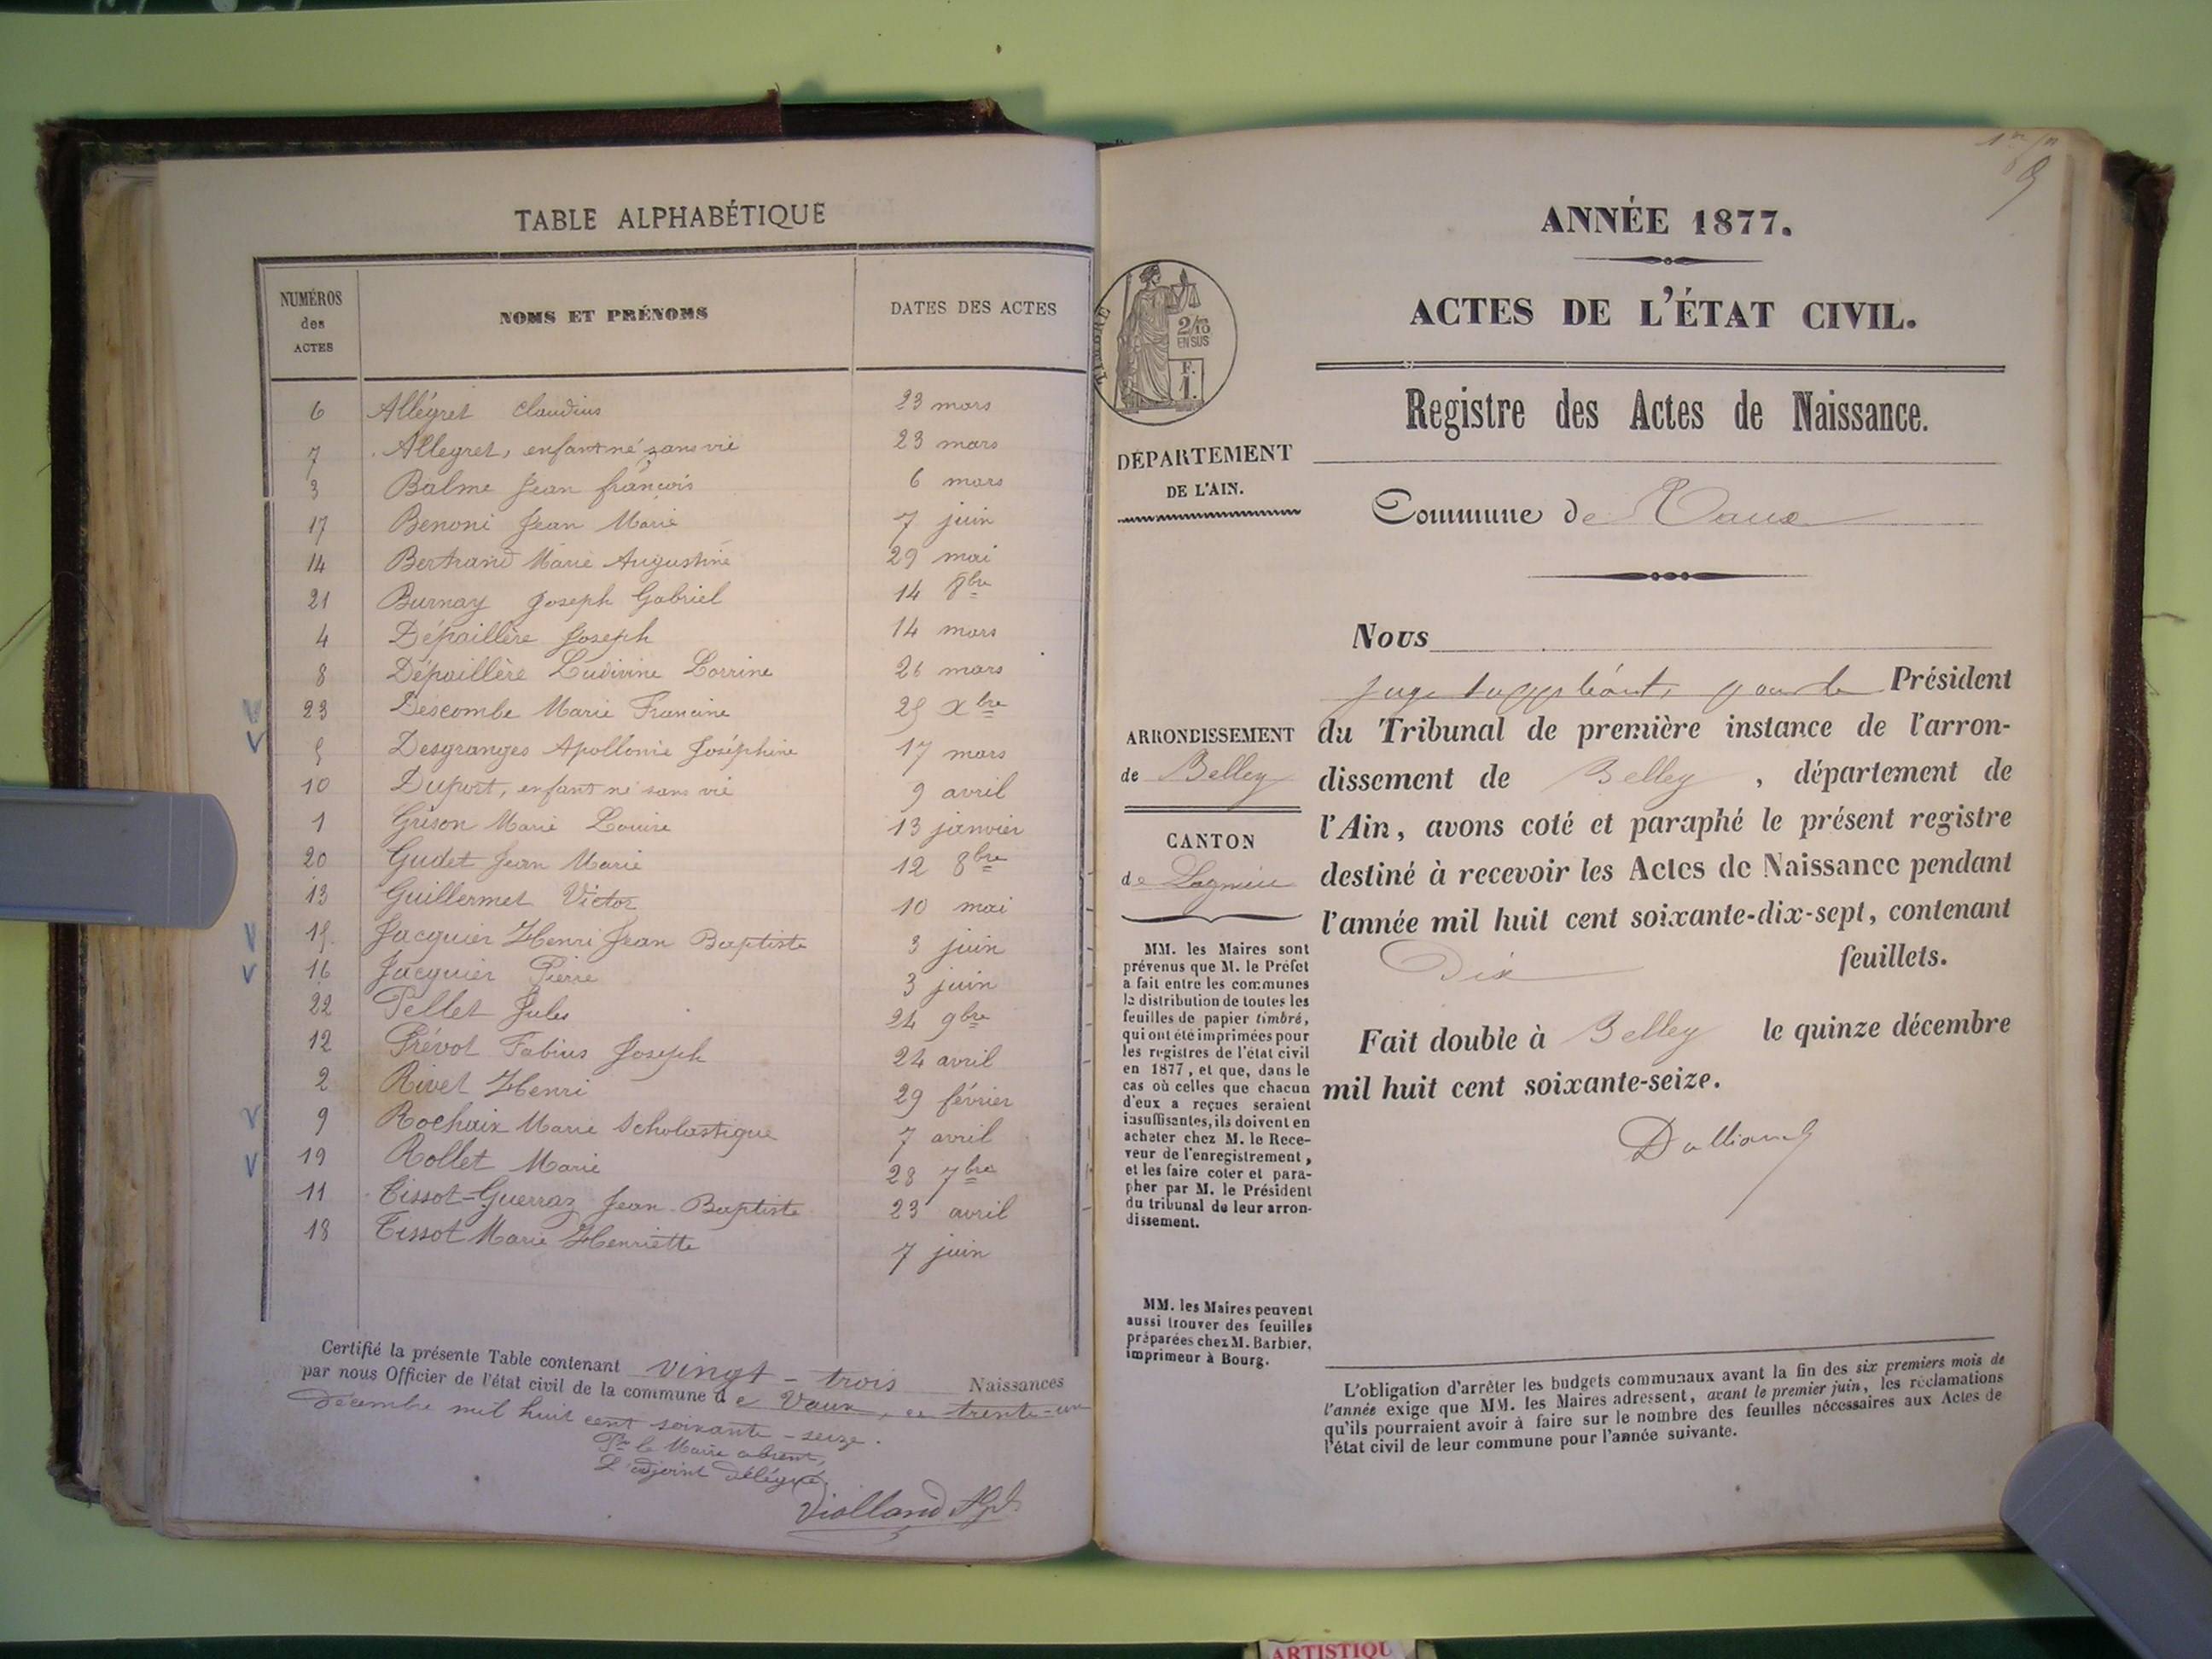 TABLE ALPHABÉTIQUE
NUMÉROS
des
ACTES
NOMS ET PRÉNOMS
DATES DES ACTES
6 Allégret Claudius 23 mars
7 Allegret, enfant né sans vie 23 mars
3 Balme Jean françois 6 mars
17 Benoni Jean Marie 7 juin
14 Bertrand Marie Augustine 29 mai
21 Burnay Joseph Gabriel 14 8bre
4 Dépaillère Joseph 14 mars
8 Dépaillère Ludivine Lorrine 26 mars
23 Descombe Marie Francine 25 Xbre
5 Desgranges Apollonie Joséphine 17 mars
10 Duport, enfant né sans vie 9 avril
1 Grison Marie Louise 13 janvier
20 Gudet Jean Marie 12 8bre
13 Guillermet Victor 10 mai
15 Jacquier Henri Jean Baptiste 3 juin
16 Jacquier Pierre 3 juin
22 Pellet Jules 24 9bre
12 Prévot Fabius Joseph 24 avril
2 Rivet Henri 29 février
9 Rochaix Marie Scholastique 7 avril
19 Rollet Marie 28 7bre
11 Tissot-Guerraz Jean-Baptiste 23 avril
18 Tissot Marie Henriette 7 juin
Certifié la présente Table contenant vingt-trois Naissances
par nous Officier de l'état civil de la commune de Vaux, ce trente-un
Décembre mil huit cent soixante-seize.
Pr le Maire absent,
L'adjoint délégué
Violland
ANNÉE 1877.
ACTES DE L'ÉTAT CIVIL.
TIMBRE
2/10
EN SUS
F.
1.
Registre des Actes de Naissance.
DÉPARTEMENT
DE L'AIN.
Commune de Vaux
Nous
juge suppléant, pour le Président
du Tribunal de première instance de l'arron-
dissement de Belley, département de
l'Ain, avons coté et paraphé le présent registre
destiné à recevoir les Actes de Naissance pendant
l'année mil huit cent soixante-dix-sept, contenant
Dix feuillets.
Fait double à Belley le quinze décembre
mil huit cent soixante-seize.
ARRONDISSEMENT
de Belley
CANTON
de Lagnieu
MM. les Maires sont
prévenus que M. le Préfet
a fait entre les communes
la distribution de toutes les
feuilles de papier timbré,
qui ont été imprimées pour
les registres de l'état civil
en 1877, et que, dans le
cas où celles que chacun
d'eux a reçues seraient
insuffisantes, ils doivent en
acheter chez M. le Rece-
veur de l'enregistrement,
et les faire coter et para-
pher par M. le Président
du tribunal de leur arron-
dissement.
MM. les Maires peuvent
aussi trouver des feuilles
préparées chez M. Barbier,
imprimeur à Bourg.
L'obligation d'arrêter les budgets communaux avant la fin des six premiers mois de
l'année exige que MM. les Maires adressent, avant le premier juin, les réclamations
qu'ils pourraient avoir à faire sur le nombre des feuilles nécessaires aux Actes de
l'état civil de leur commune pour l'année suivante.
ARTISTIQU